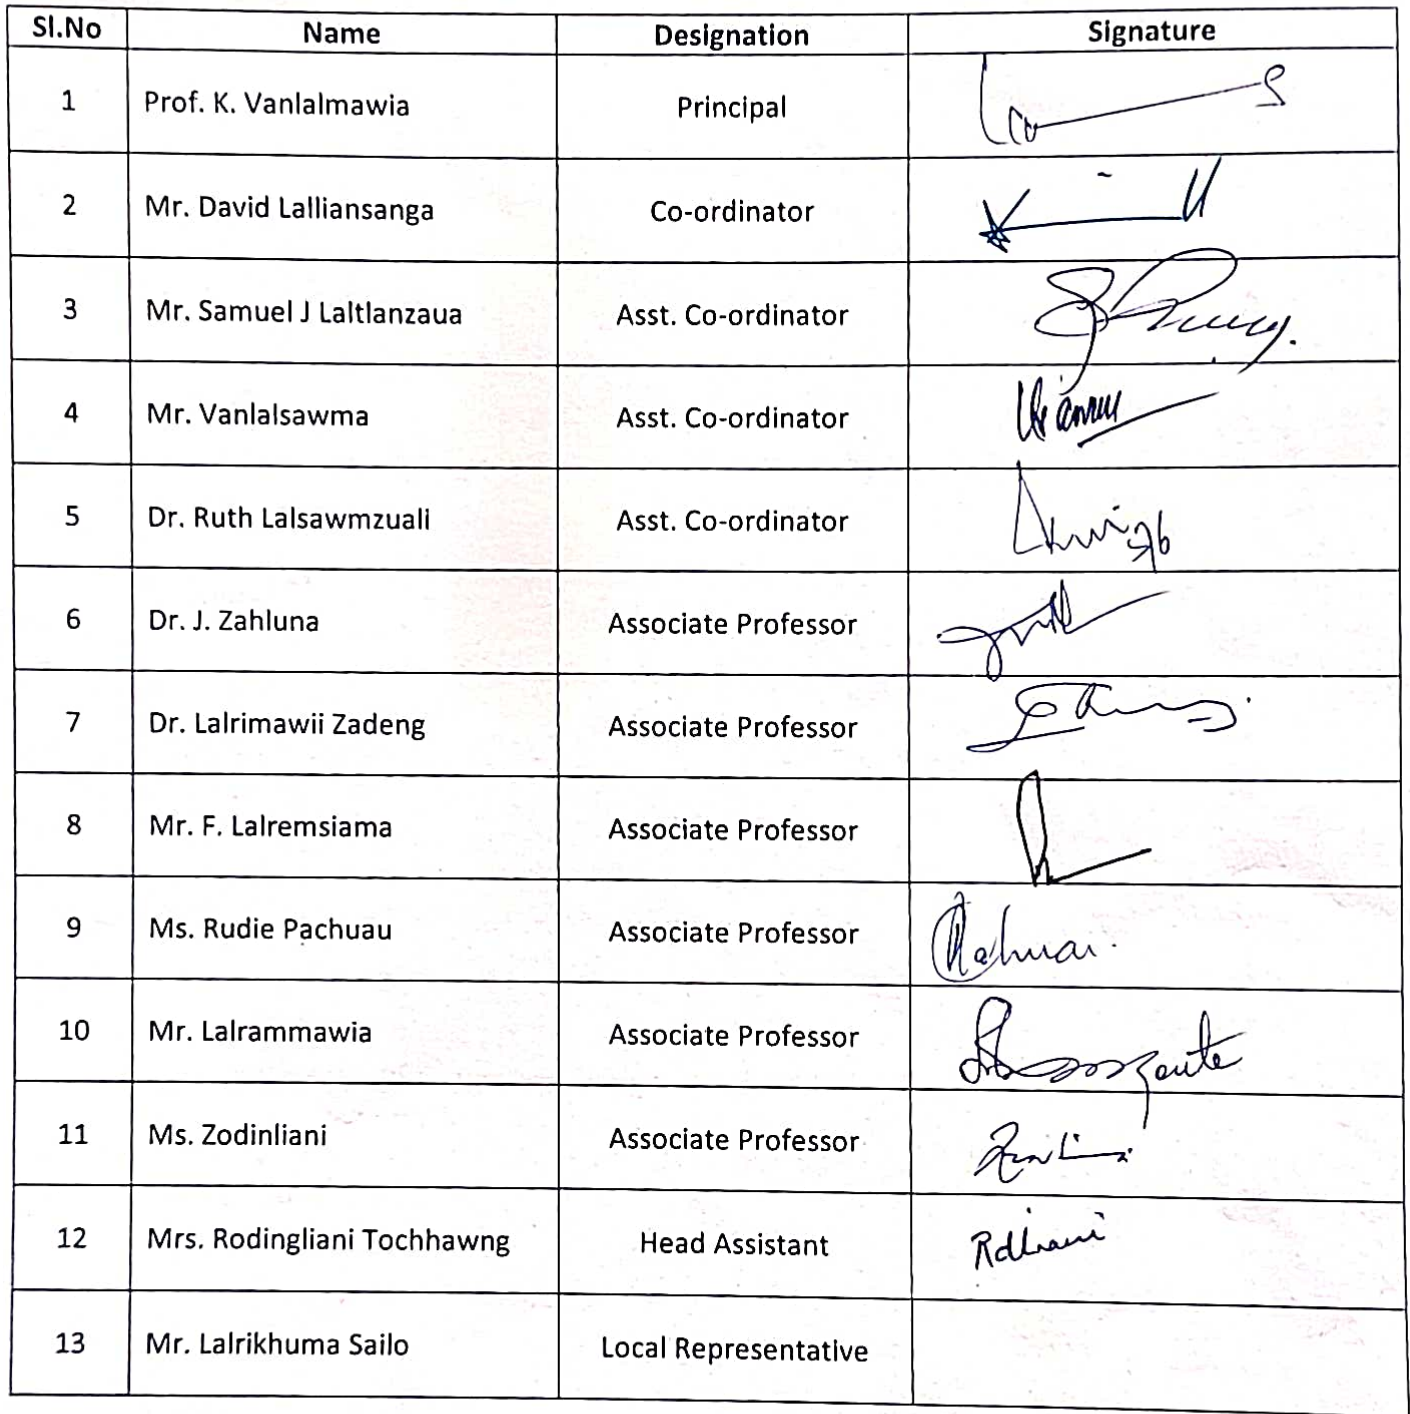 Sl.No Name Designation Signature
1 Prof. K. Vanlalmawia Principal
2 Mr. David Lalliansanga Co-ordinator
3 Mr. Samuel J Laltlanzaua Asst. Co-ordinator
4 Mr. Vanlalsawma Asst. Co-ordinator
5 Dr. Ruth Lalsawmzuali Asst. Co-ordinator
6 Dr. J. Zahluna Associate Professor
7 Dr. Lalrimawii Zadeng Associate Professor
8 Mr. F. Lalremsiama Associate Professor
9 Ms. Rudie Pachuau Associate Professor
10 Mr. Lalrammawia Associate Professor
11 Ms. Zodinliani Associate Professor
12 Mrs. Rodingliani Tochhawng Head Assistant
13 Mr. Lalrikhuma Sailo Local Representative